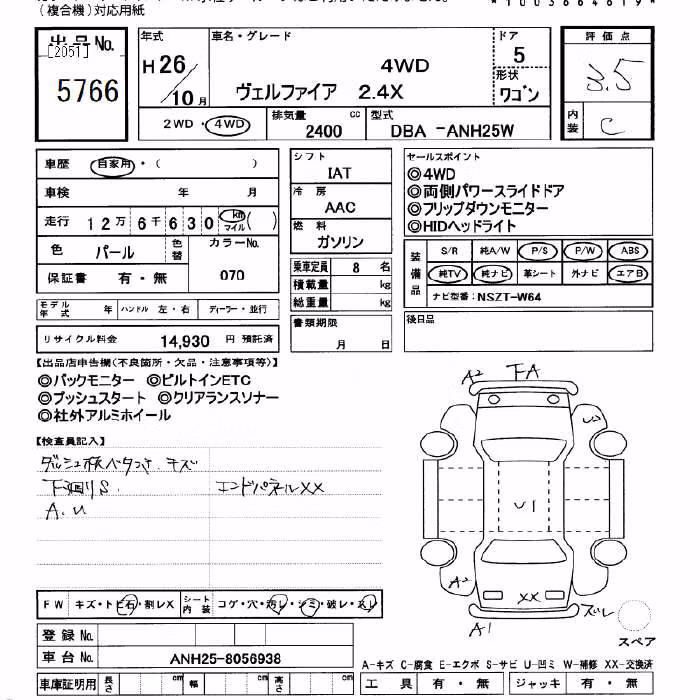 (複合機)対応用紙
*1003664619*
出品No.
[2051]
5766
年式
H26/10月
車名・グレード
4WD
ヴェルファイア 2.4X
ドア
5
形状
ワゴン
評価点
3.5
内装
C
2WD・4WD
排気量 cc
2400
型式
DBA -ANH25W
車歴 自家用・( )
車検 年 月
走行 12万6千630 km マイル ( )
色 パール 色替
カラーNo.
070
保証書 有・無
シフト
IAT
冷房
AAC
燃料
ガソリン
乗車定員 8 名
積載量 kg
総重量 kg
セールスポイント
◎4WD
◎両側パワースライドドア
◎フリップダウンモニター
◎HIDヘッドライト
装備品
S/R 純A/W P/S P/W ABS
純TV 純ナビ 革シート 外ナビ エアB
ナビ型番:NSZT-W64
モデル年式 年 ハンドル 左・右 ディーラー・並行
リサイクル料金 14,930 円 預託済
書類期限
月 日
後日品
【出品店申告欄(不良箇所・欠品・注意事項等)】
◎バックモニター ◎ビルトインETC
◎プッシュスタート ◎クリアランスソナー
◎社外アルミホイール
【検査員記入】
キズ
下廻りS.
エンドパネルXX
A.U
A2 FA
U1
A2 XX
ズレ
A1
スペア
FW キズ・トビ石・割レX
シート内装 コゲ・穴・汚レ・シミ・破レ・スレ
登録No.
車台No. ANH25-8056938
A-キズ C-腐食 E-エクボ S-サビ U-凹ミ W-補修 XX-交換済
車庫証明用 長さ cm 幅 cm 高さ cm
工具 有・無 ジャッキ 有・無